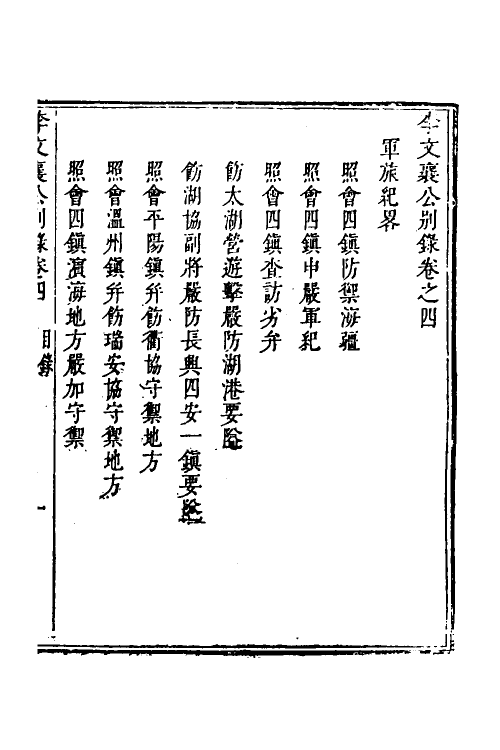 李文襄公別錄卷之四
軍旅紀畧
照會四鎮防禦海疆
照會四鎮申嚴軍紀
照會四鎮查訪劣弁
飭太湖營遊擊嚴防湖港要隘
飭湖協副將嚴防長興四安一鎮要隘
照會平陽鎮幷飭衢協守禦地方
照會溫州鎮幷飭瑞安協守禦地方
照會四鎮濵海地方嚴加守禦
李文襄公別錄卷四 目錄 一